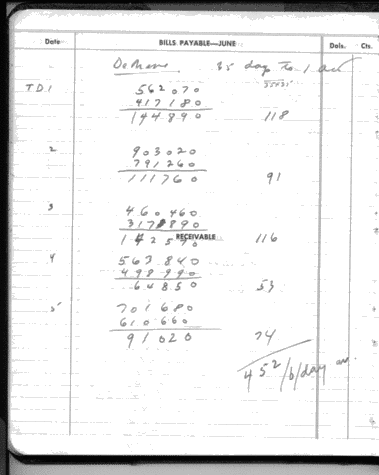 Date BILLS PAYABLE—JUNE Dols. Cts.
35 day to 1
TD 1 562070
417180
144890 118
2 903020
791260
111760 91
3 460460
317890
142570 116
RECEIVABLE
4 563840
498990
64850 53
5 701680
610660
91020 74
452/b/day av.